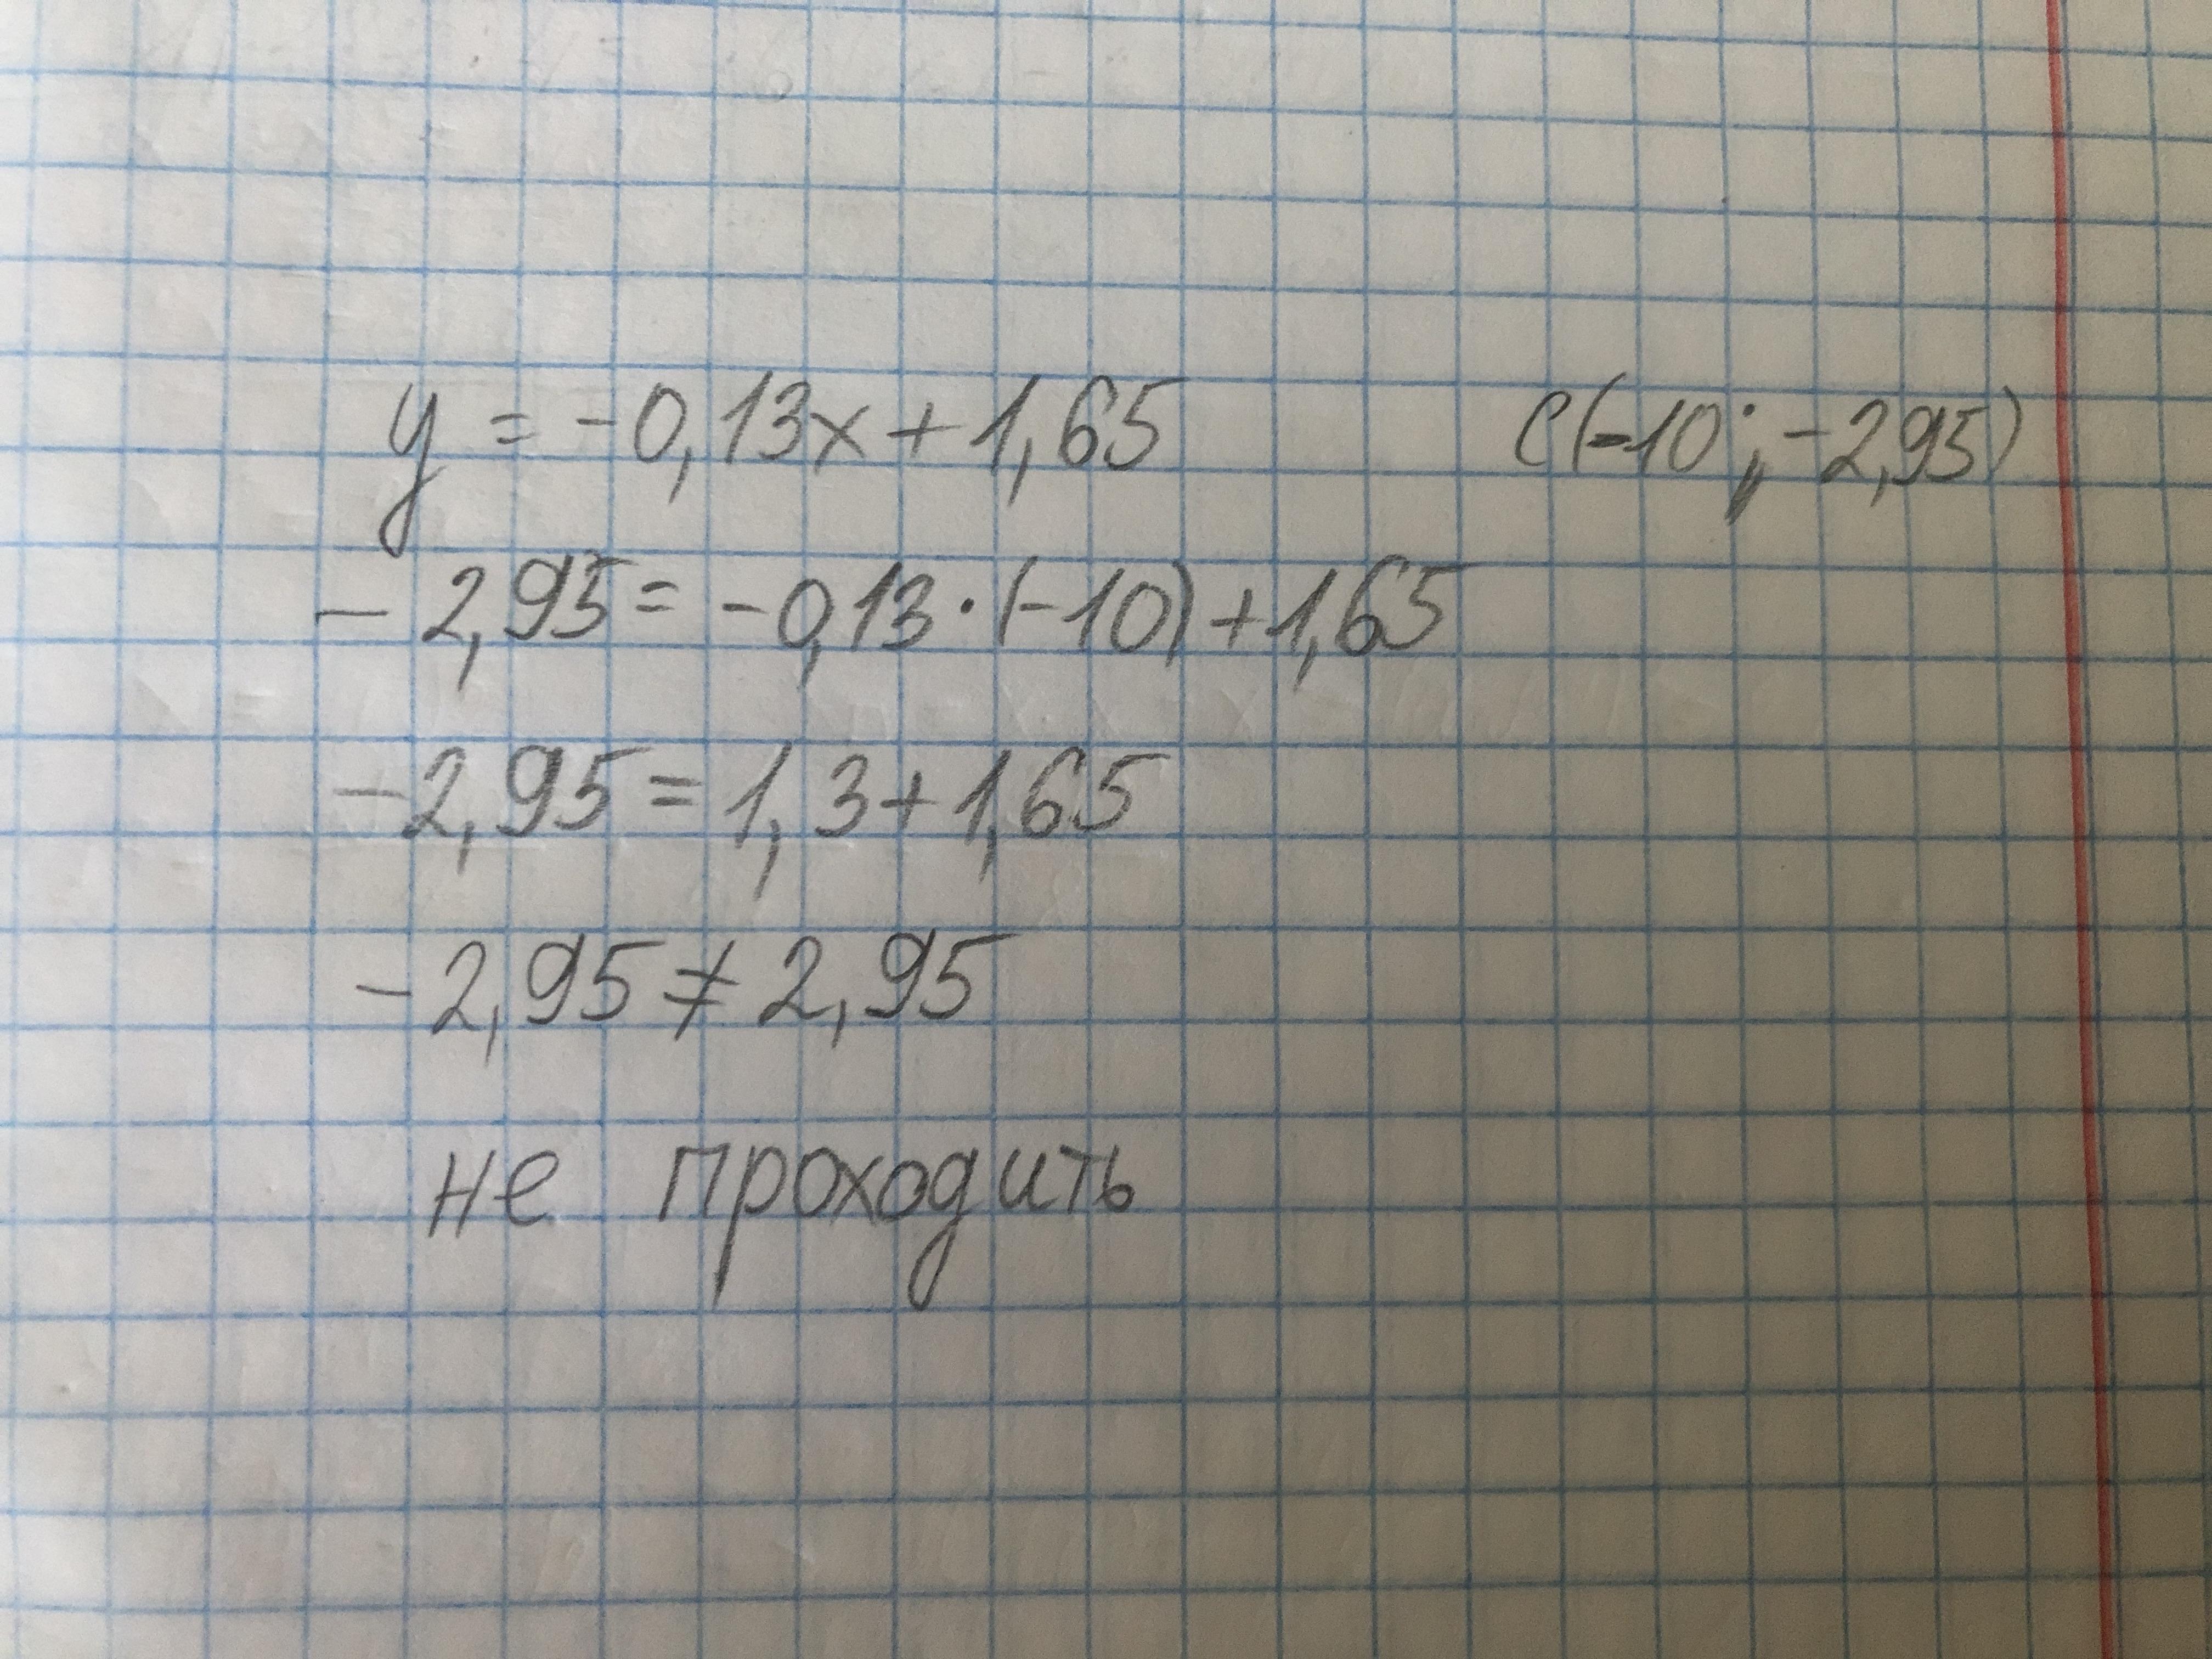 y = -0,13x + 1,65 C(-10; -2,95)
- 2,95 = -0,13 · (-10) + 1,65
-2,95 = 1,3 + 1,65
-2,95 ≠ 2,95
не проходить